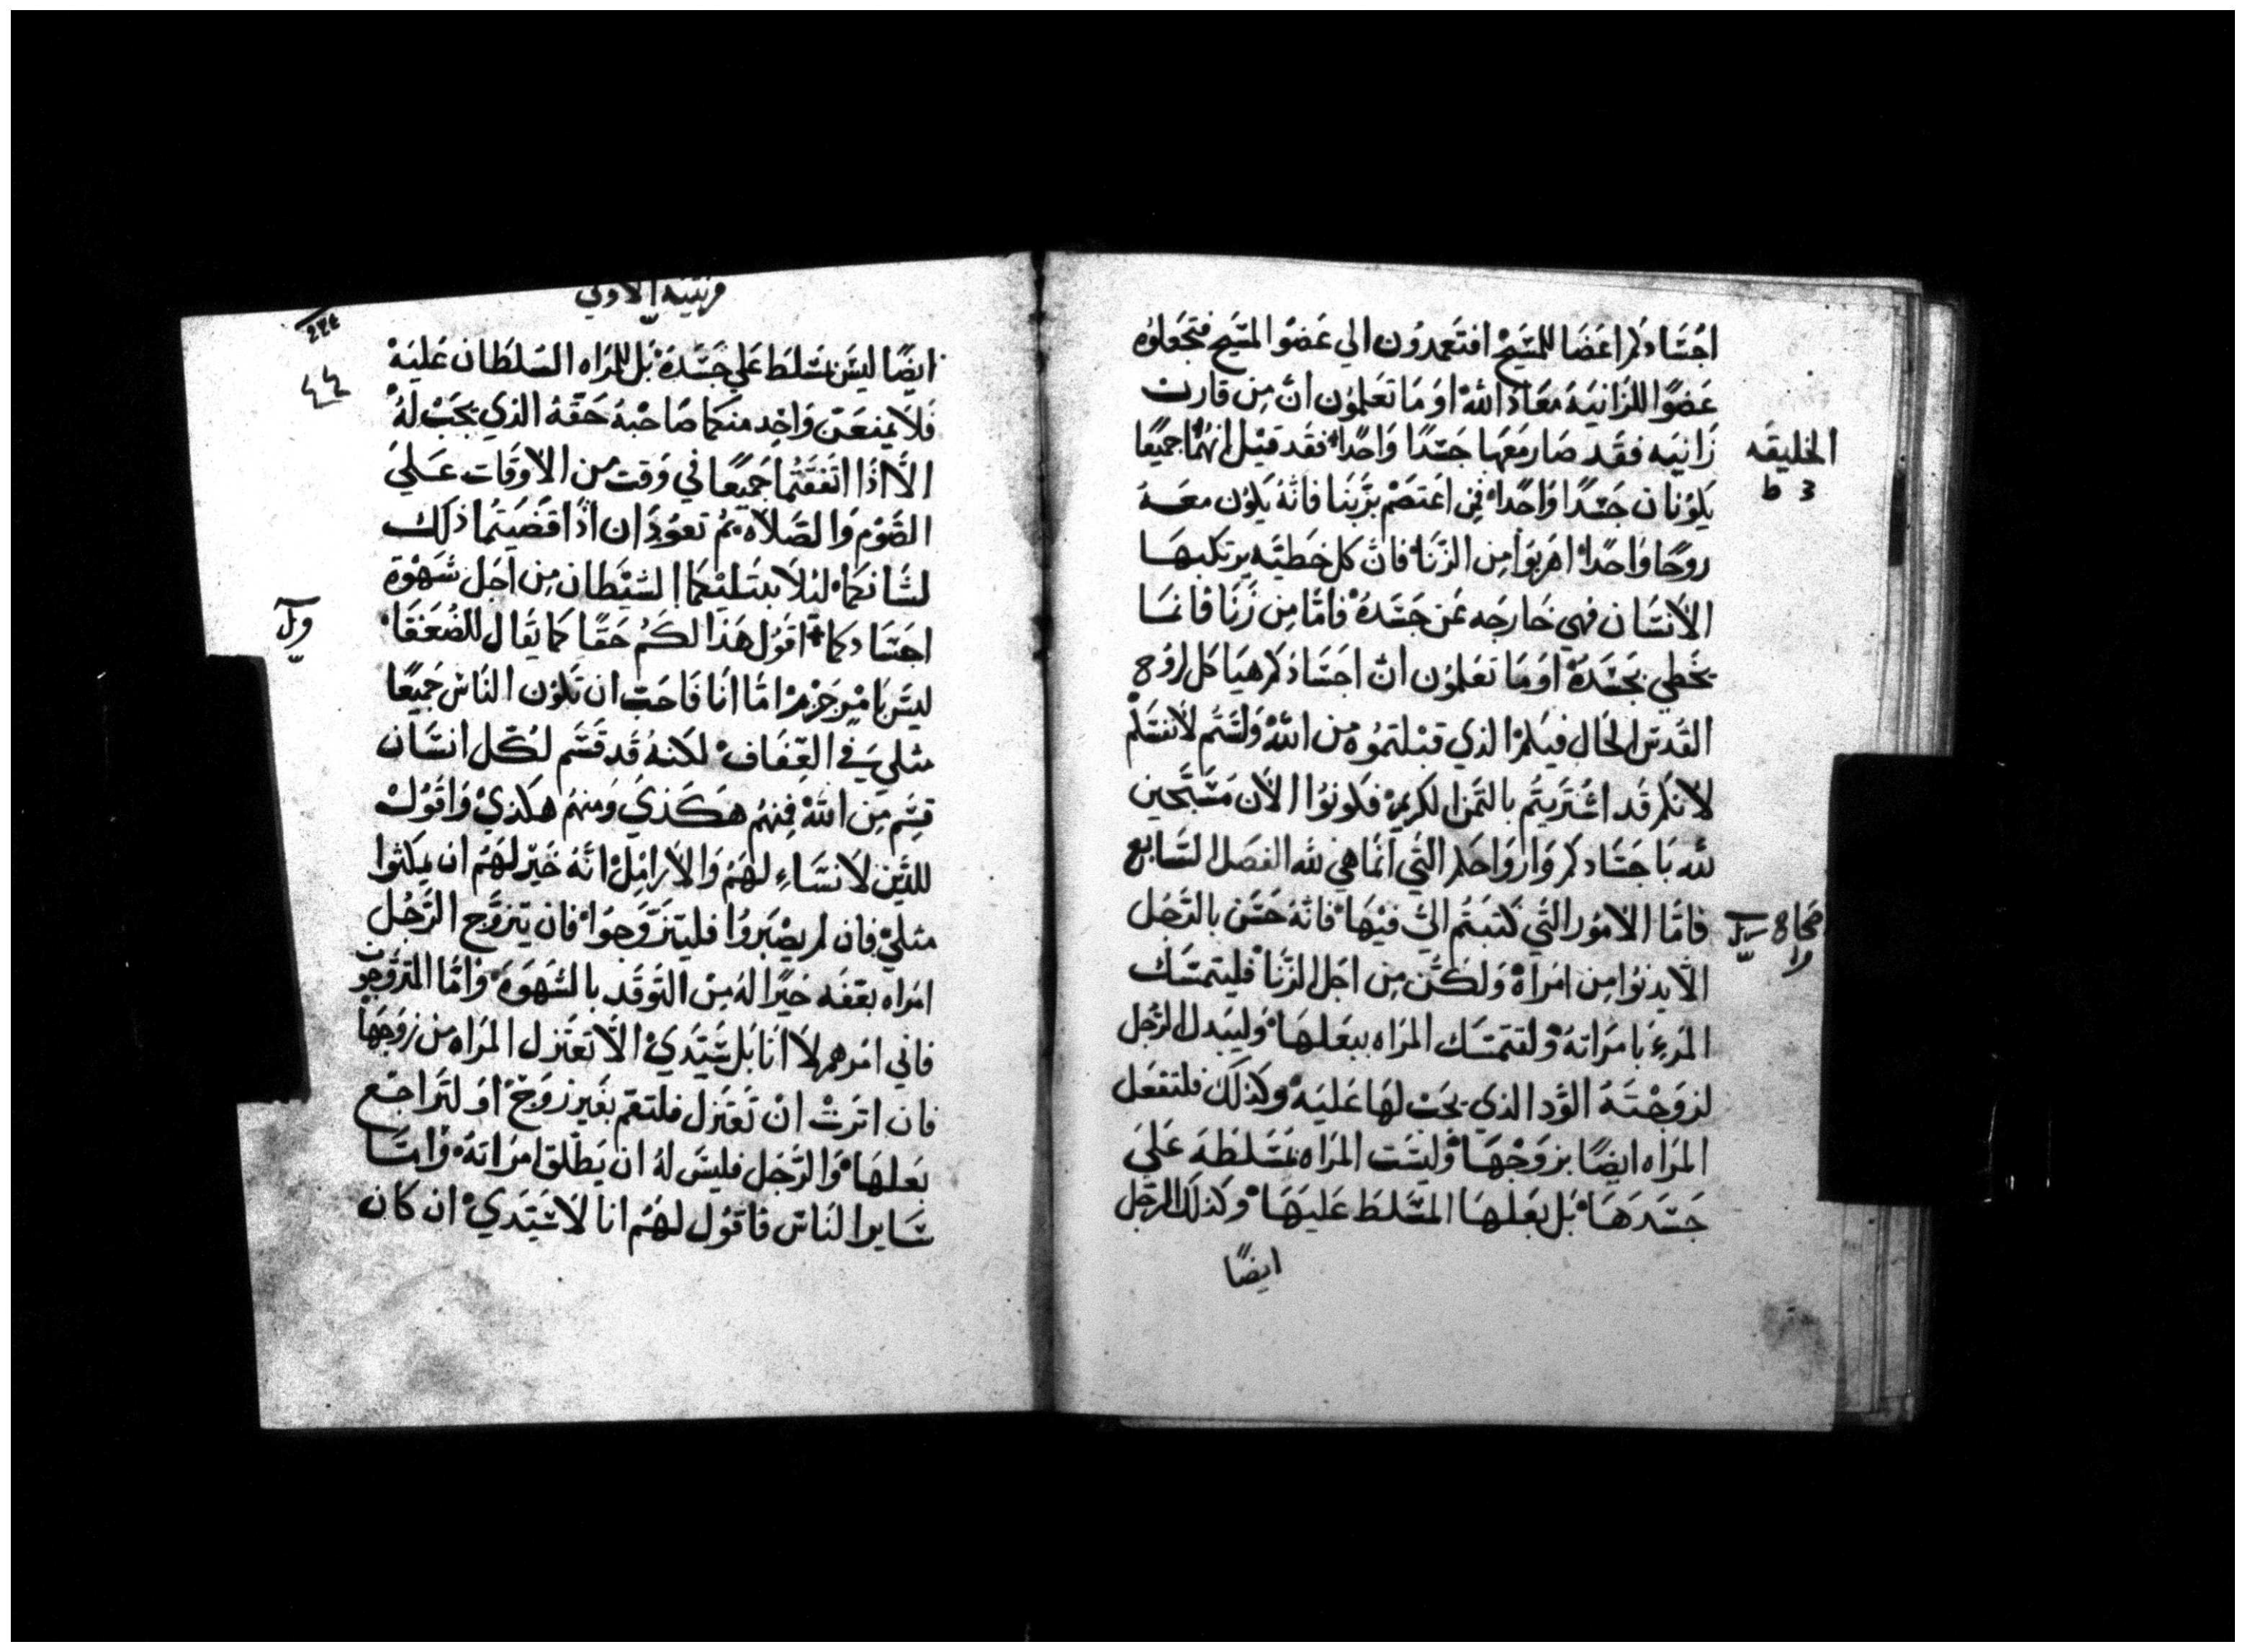 اجسادكم اعضا للمسيح افتعمدون الي عضو المسيح فتجعلوه
عضوا للزانيه معاد الله او ما تعلمون ان من قارن
زانيه فقد صار معها جسدا واحدا فقد قيل انهما جميعا
يكونان جسدا واحدا فمن اعتصم بربنا فانه يكون معه
روحا واحدا اهربوا من الزنا فان كل خطيه يرتكبها
الانسان فهي خارجه عن جسده فاما من زنا فانما
يخطي بجسده او ما تعلمون ان اجسادكم هياكل لروح
القدس الحال فيكم الذي قبلتموه من الله ولستم لانفسكم
لانكم قد اشتريتم بالثمن الكريم فكونوا الان مسبحين
لله باجسادكم وارواحكم التي انما هي لله الفصل السابع
فاما الامور التي كتبتم الي فيها فانه حسن بالرجل
الا يدنوا من امراة ولكن من اجل الزنا فليتمسك
المرء بامراته ولتتمسك المراه ببعلها وليبدل الرجل
لزوجته الود الذي يجب لها عليه وكذلك فلتفعل
المراه ايضا بزوجها وليست المراه مسلطه علي
جسدها بل بعلها المسلط عليها وكذلك الرجل
ايضا
الخليقه
اصحاح
قرنتيه الاولي
ايضا ليس مسلط علي جسده بل المراه السلطان عليه
فلا يمنعن واحد منكما صاحبه حقه الذي يجب له
الا اذا اتفقتما جميعا في وقت من الاوقات علي
الصوم والصلاه ثم تعودان اذا قضيتما ذلك
لشانكما ليلا يبتليكما الشيطان من اجل شهوة
اجسادكما اقول هذا لكم حقا كما يقال للضعفا
ليس بامر جزم اما انا فاحب ان تكون الناس جميعا
مثلي في العفاف لكنه قد قسم لكل انسان
قسم من الله فمنهم هكذي ومنهم هكذي واقول
للذين لا نساء لهم والارامل انه خير لهم ان يمكثوا
مثلي فان لم يصبروا فليتزوجوا فان يتزوج الرجل
امراه بعفه خيرا له من التوقد بالشهوه واما المتزوجون
فاني امرهم لا انا بل سيدي الا تعتزل المراه من زوجها
فان اترت ان تعتزل فلتقم بغير زوج او لتراجع
بعلها والرجل فليس له ان يطلق امراته واما
ساير الناس فاقول لهم انا لا سيدي ان كان